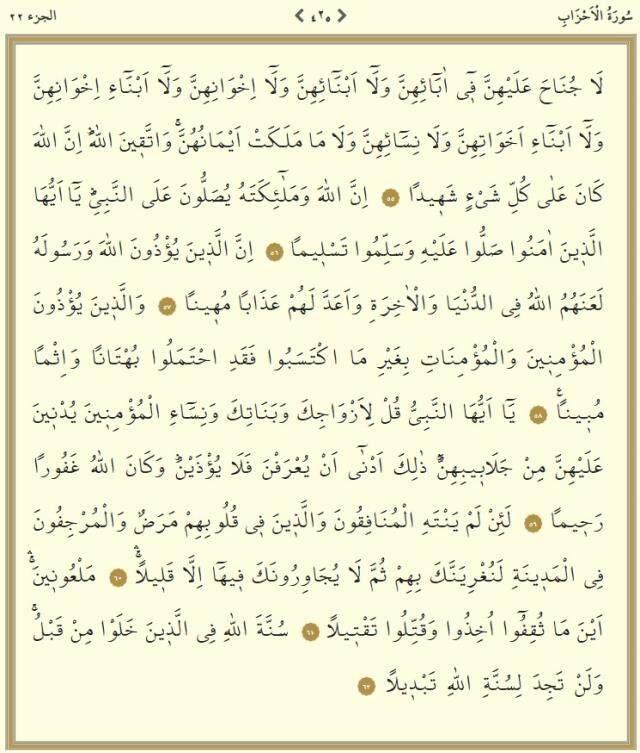 سُورَةُ الْاَحْزَابِ ٤٢٥ الجزء ٢٢
لَا جُنَاحَ عَلَيْهِنَّ ف۪ٓي اٰبَٓائِهِنَّ وَلَٓا اَبْنَٓائِهِنَّ وَلَٓا اِخْوَانِهِنَّ وَلَٓا اَبْنَٓاءِ اِخْوَانِهِنَّ
وَلَٓا اَبْنَٓاءِ اَخَوَاتِهِنَّ وَلَا نِسَٓائِهِنَّ وَلَا مَا مَلَكَتْ اَيْمَانُهُنَّۚ وَاتَّق۪ينَ اللّٰهَۜ اِنَّ اللّٰهَ
كَانَ عَلٰى كُلِّ شَيْءٍ شَه۪يدًا ٥٥ اِنَّ اللّٰهَ وَمَلٰٓئِكَتَهُ يُصَلُّونَ عَلَى النَّبِيِّۜ يَٓا اَيُّهَا
الَّذ۪ينَ اٰمَنُوا صَلُّوا عَلَيْهِ وَسَلِّمُوا تَسْل۪يمًا ٥٦ اِنَّ الَّذ۪ينَ يُؤْذُونَ اللّٰهَ وَرَسُولَهُ
لَعَنَهُمُ اللّٰهُ فِي الدُّنْيَا وَالْاٰخِرَةِ وَاَعَدَّ لَهُمْ عَذَابًا مُه۪ينًا ٥٧ وَالَّذ۪ينَ يُؤْذُونَ
الْمُؤْمِن۪ينَ وَالْمُؤْمِنَاتِ بِغَيْرِ مَا اكْتَسَبُوا فَقَدِ احْتَمَلُوا بُهْتَانًا وَاِثْمًا
مُب۪ينًا۟ ٥٨ يَٓا اَيُّهَا النَّبِيُّ قُلْ لِاَزْوَاجِكَ وَبَنَاتِكَ وَنِسَٓاءِ الْمُؤْمِن۪ينَ يُدْن۪ينَ
عَلَيْهِنَّ مِنْ جَلَاب۪يبِهِنَّۜ ذٰلِكَ اَدْنٰٓى اَنْ يُعْرَفْنَ فَلَا يُؤْذَيْنَۜ وَكَانَ اللّٰهُ غَفُورًا
رَح۪يمًا ٥٩ لَئِنْ لَمْ يَنْتَهِ الْمُنَافِقُونَ وَالَّذ۪ينَ ف۪ي قُلُوبِهِمْ مَرَضٌ وَالْمُرْجِفُونَ
فِي الْمَد۪ينَةِ لَنُغْرِيَنَّكَ بِهِمْ ثُمَّ لَا يُجَاوِرُونَكَ ف۪يهَٓا اِلَّا قَل۪يلًاۚۛ ٦٠ مَلْعُون۪ينَۚۛ
اَيْنَ مَا ثُقِفُٓوا اُخِذُوا وَقُتِّلُوا تَقْت۪يلًا ٦١ سُنَّةَ اللّٰهِ فِي الَّذ۪ينَ خَلَوْا مِنْ قَبْلُۚ
وَلَنْ تَجِدَ لِسُنَّةِ اللّٰهِ تَبْد۪يلًا ٦٢